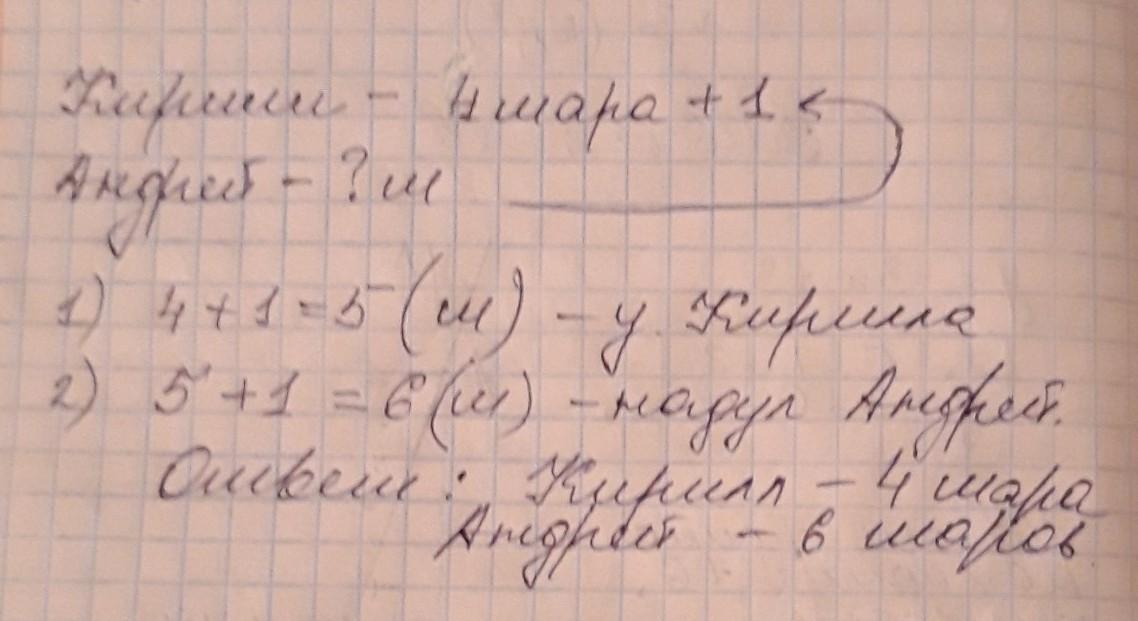 Кирилл - 4 шара + 1
Андрей - ? ш
1) 4 + 1 = 5 (ш) - у Кирилла
2) 5 + 1 = 6 (ш) - надул Андрей.
Ответ: Кирилл - 4 шара
Андрей - 6 шаров